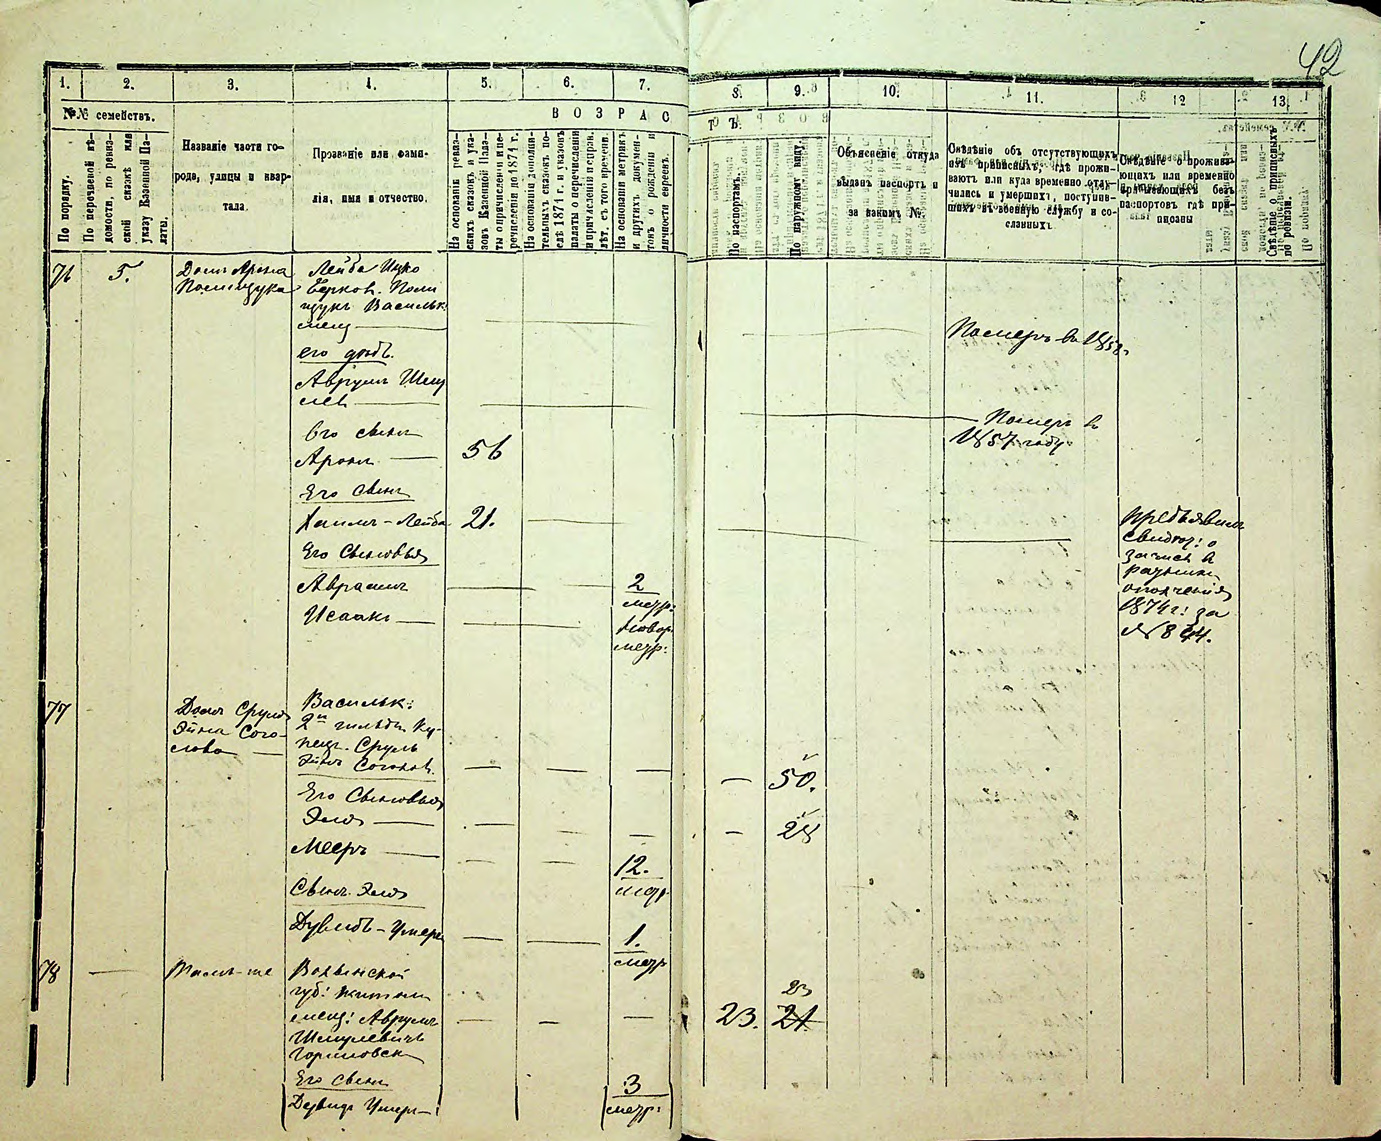 42
1. 2. 3. 4. 5. 6. 7. 8. 9. 10. 11. 12 13.
№№ семействъ.
В О З Р А С Т Ъ.
По порядку.
По перечневой вѣ-
домости, по ревиз-
ской сказкѣ или
указу Казенной Па-
латы.
Названіе части го-
рода, улицы и квар-
тала.
Прозваніе или фами-
лія, имя и отчество.
На основаніи ревиз-
скихъ сказокъ и ука-
зовъ Казенной Пала-
ты о причисленіи и пе-
речисленіи до 1871 г.
На основаніи дополни-
тельныхъ сказокъ по-
слѣ 1871 г. и указовъ
палаты о перечисленіи
и причисленіи и исправ.
лѣт. съ того времени.
На основаніи метрикъ
и другихъ докумен-
товъ о рожденіи и
личности евреевъ.
По паспортамъ.
По наружному виду.
Объясненіе откуда
выданъ паспортъ и
за какимъ №.
Свѣдѣніе объ отсутствующихъ
изъ приписныхъ, гдѣ прожи-
ваютъ или куда временно отлу-
чились и умершихъ, поступив-
шихъ въ военную службу и со-
сланныхъ.
Свѣдѣніе о прожива-
ющихъ или временно
проживающихъ безъ
паспортовъ гдѣ при-
писаны
Свѣдѣніе о приписныхъ
по ревизіи.
76 5. Домъ Арона
Полищука
Лейба Ицко
Берков. Поли
щукъ Васильк.
мещ
Померъ въ 1858.
его дядь.
Аврумъ Шму
лев
Померъ в
1857 году.
Его сынъ
Аронъ 56
Его Сынъ
Хаимъ-Лейба 21.
предъявилъ
свидет: о
записи в
ратники
ополчения
1874 г: за
№ 844.
Его Сыновья
Авраамъ 2
метр:
Исаакъ
Новор.
метр:
77 Домъ Сруля
Эйна Сого-
лова
Васильк:
2й гильдіи Ку-
пецъ. Сруль
50.
Его Сыновья
Эля 28
Мееръ 12.
метр
Сынъ Эля
Дувидъ - Умеръ 1.
метр
78 Тамъ-же
Волынской
губ: житом
мещ: Аврумъ
Шмулевичъ
23. 21. 23
Его Сынъ
Дувидъ Умеръ 3
метр: